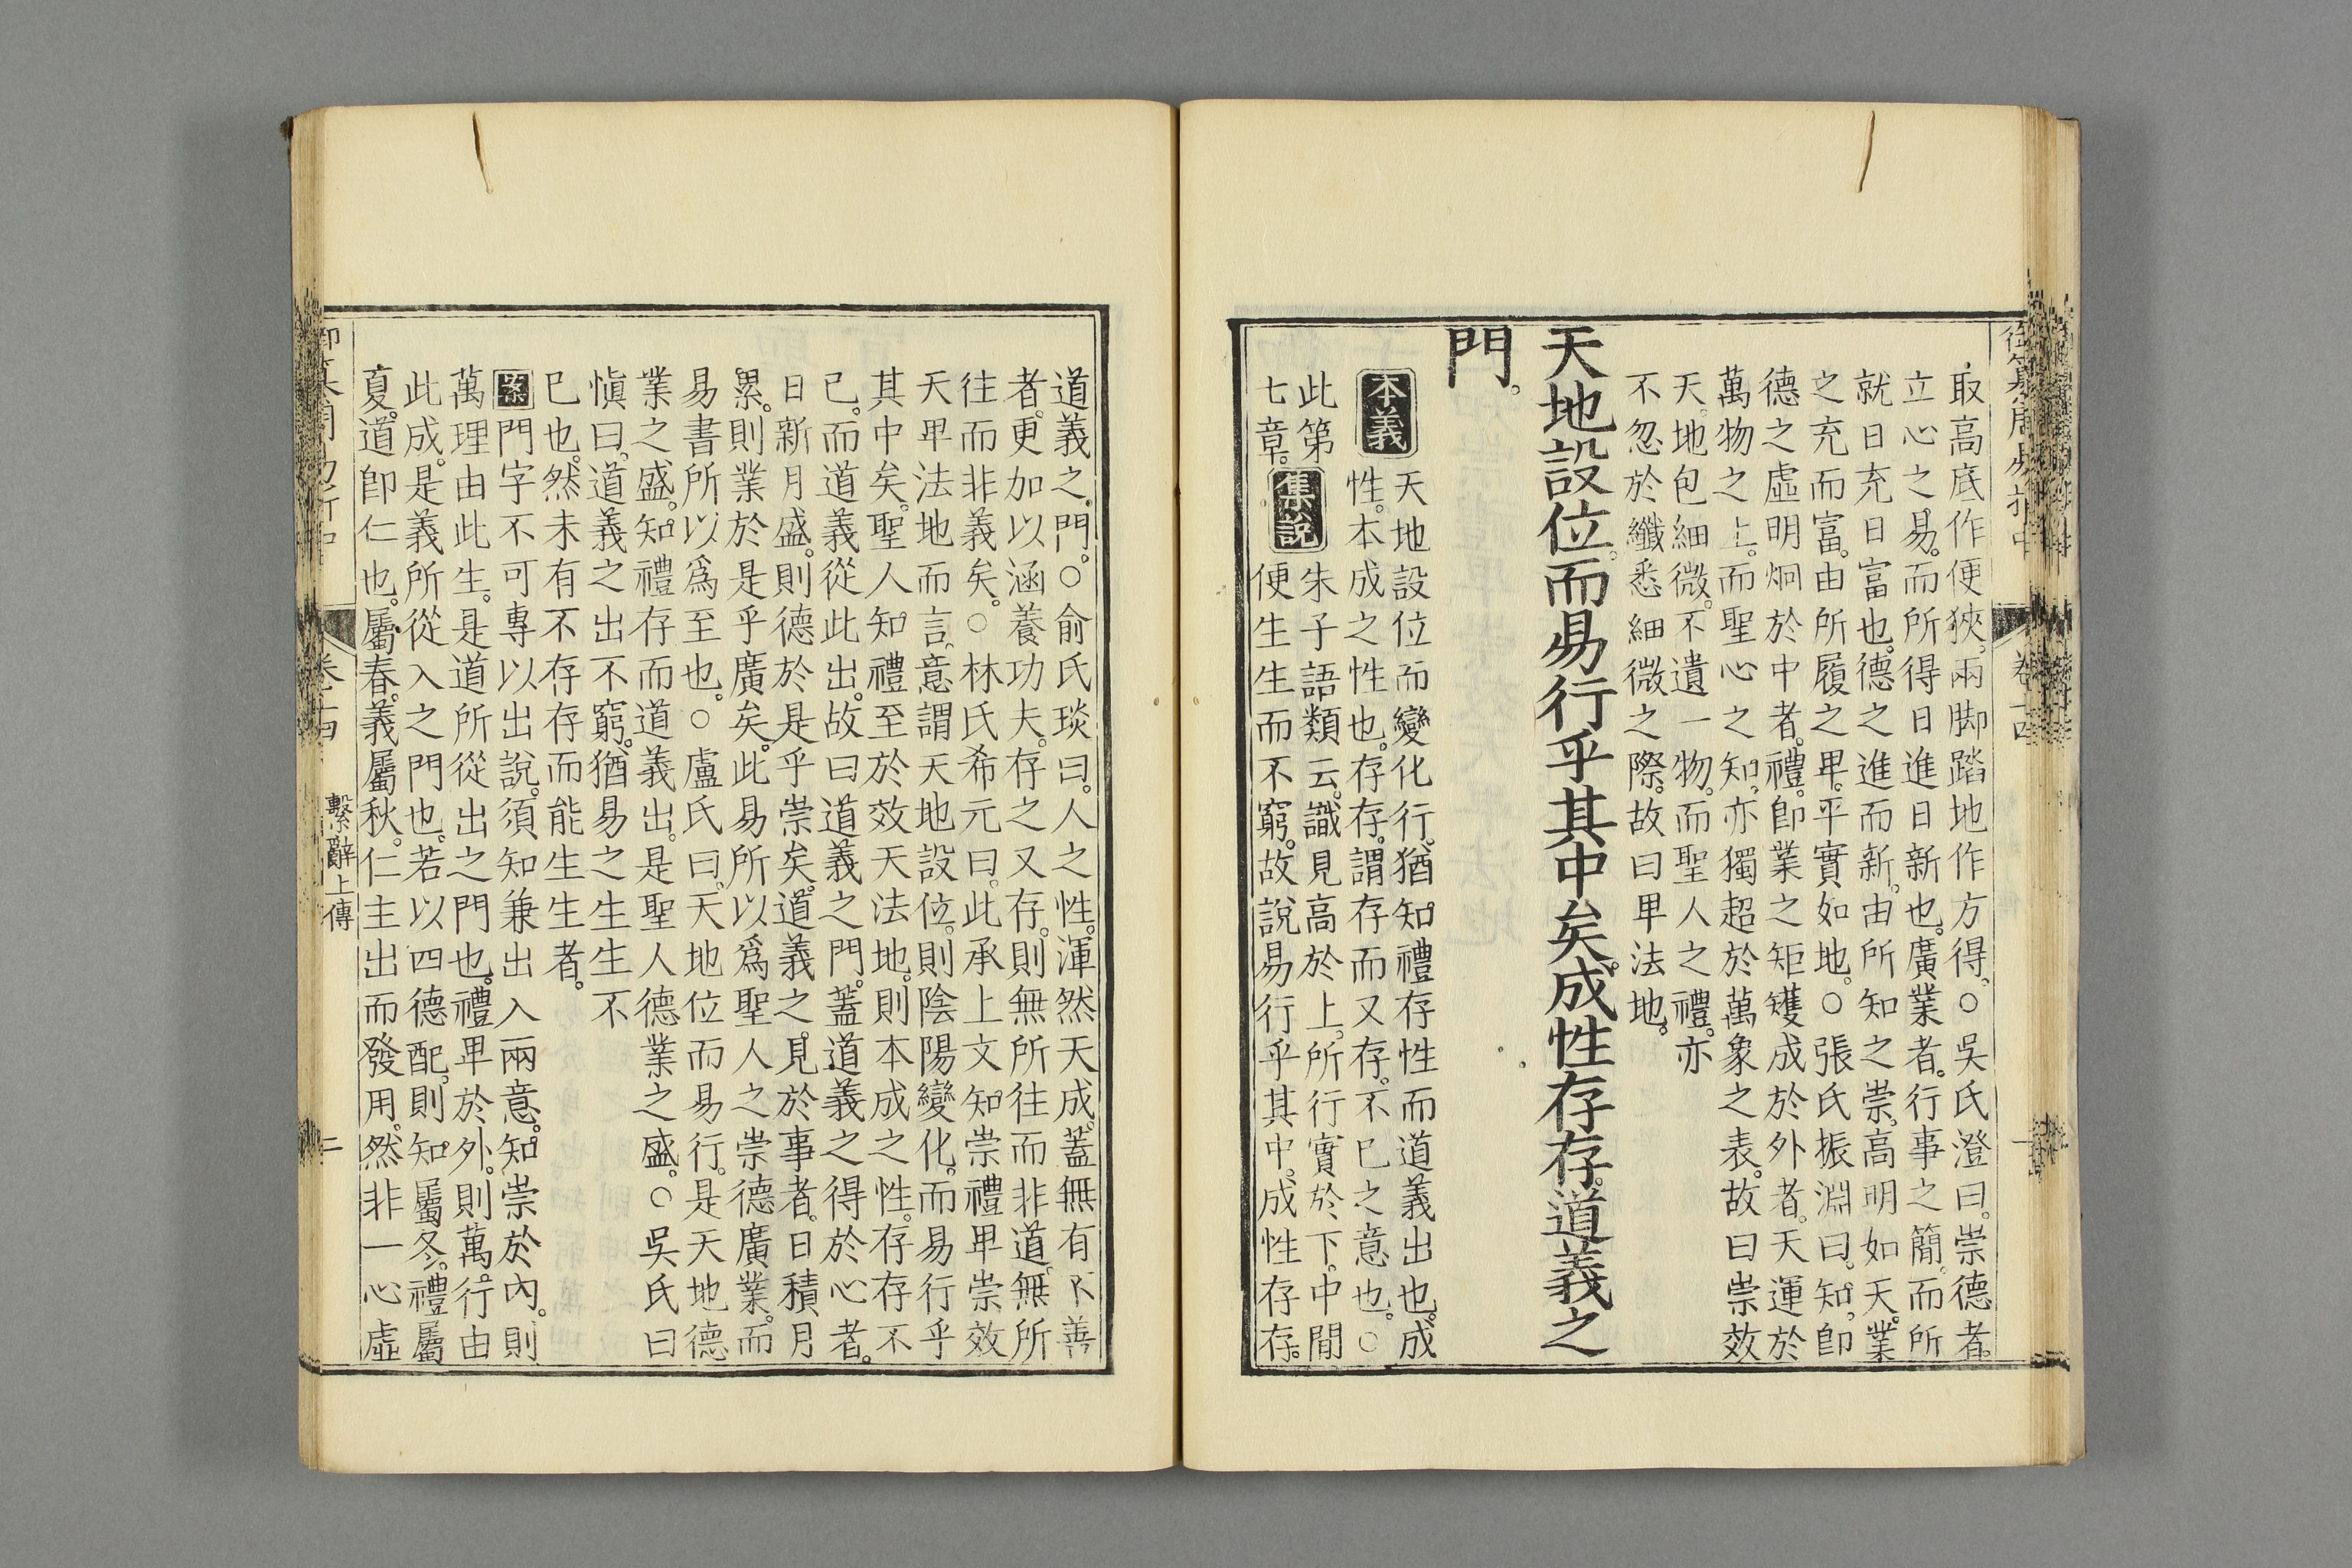 取高底作便狹。兩脚踏地作方得。○吳氏澄曰。崇德者。
立心之易。而所得日進日新也。廣業者。行事之簡。而所
就日充日富也。德之進而新。由所知之崇。高明如天。業
之充而富。由所履之卑。平實如地。○張氏振淵曰。知。卽
德之虛明炯於中者。禮。卽業之矩矱成於外者。天運於
萬物之上。而聖心之知。亦獨超於萬象之表。故曰崇效
天。地包細微。不遺一物。而聖人之禮。亦
不忽於纖悉細微之際。故曰卑法地。
天地設位。而易行乎其中矣。成性存存。道義之
門。
本義
天地設位而變化行。猶知禮存性而道義出也。成
性。本成之性也。存存。謂存而又存。不已之意也。○
此第
七章。
集說
朱子語類云。識見高於上。所行實於下。中閒
便生生而不窮。故說易行乎其中。成性存存。
道義之門。○俞氏琰曰。人之性。渾然天成。蓋無有不善
者。更加以涵養功夫。存之又存。則無所往而非道。無所
往而非義矣。○林氏希元曰。此承上文知崇禮卑崇效
天卑法地而言。意謂天地設位。則陰陽變化。而易行乎
其中矣。聖人知禮至於效天法地。則本成之性。存存不
已。而道義從此出。故曰道義之門。蓋道義之得於心者。
日新月盛。則德於是乎崇矣。道義之見於事者。日積月
累。則業於是乎廣矣。此易所以爲聖人之崇德廣業。而
易書所以爲至也。○盧氏曰。天地位而易行。是天地德
業之盛。知禮存而道義出。是聖人德業之盛。○吳氏曰
愼曰。道義之出不窮。猶易之生生不
已也。然未有不存存而能生生者。
案門字不可專以出說。須知兼出入兩意。知崇於內。則
萬理由此生。是道所從出之門也。禮卑於外。則萬行由
此成。是義所從入之門也。若以四德配。則知屬冬。禮屬
夏。道卽仁也。屬春。義屬秋。仁主出而發用。然非一心虛
卷十四
繫辭上傳
二